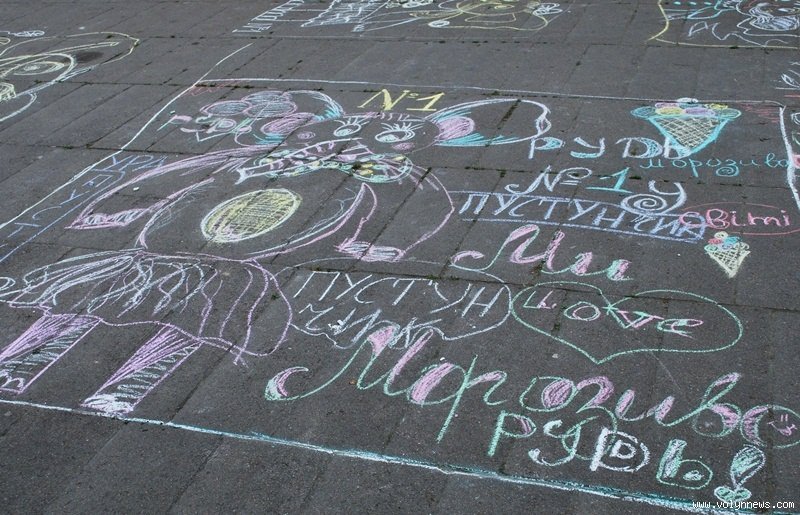 №1
РУДЬ
морозиво
№1 У
ПУСТУНЧИК
світі
Ми
ПУСТУН
ЧИК
Морозиво
РУДЬ!
www.volynnews.com